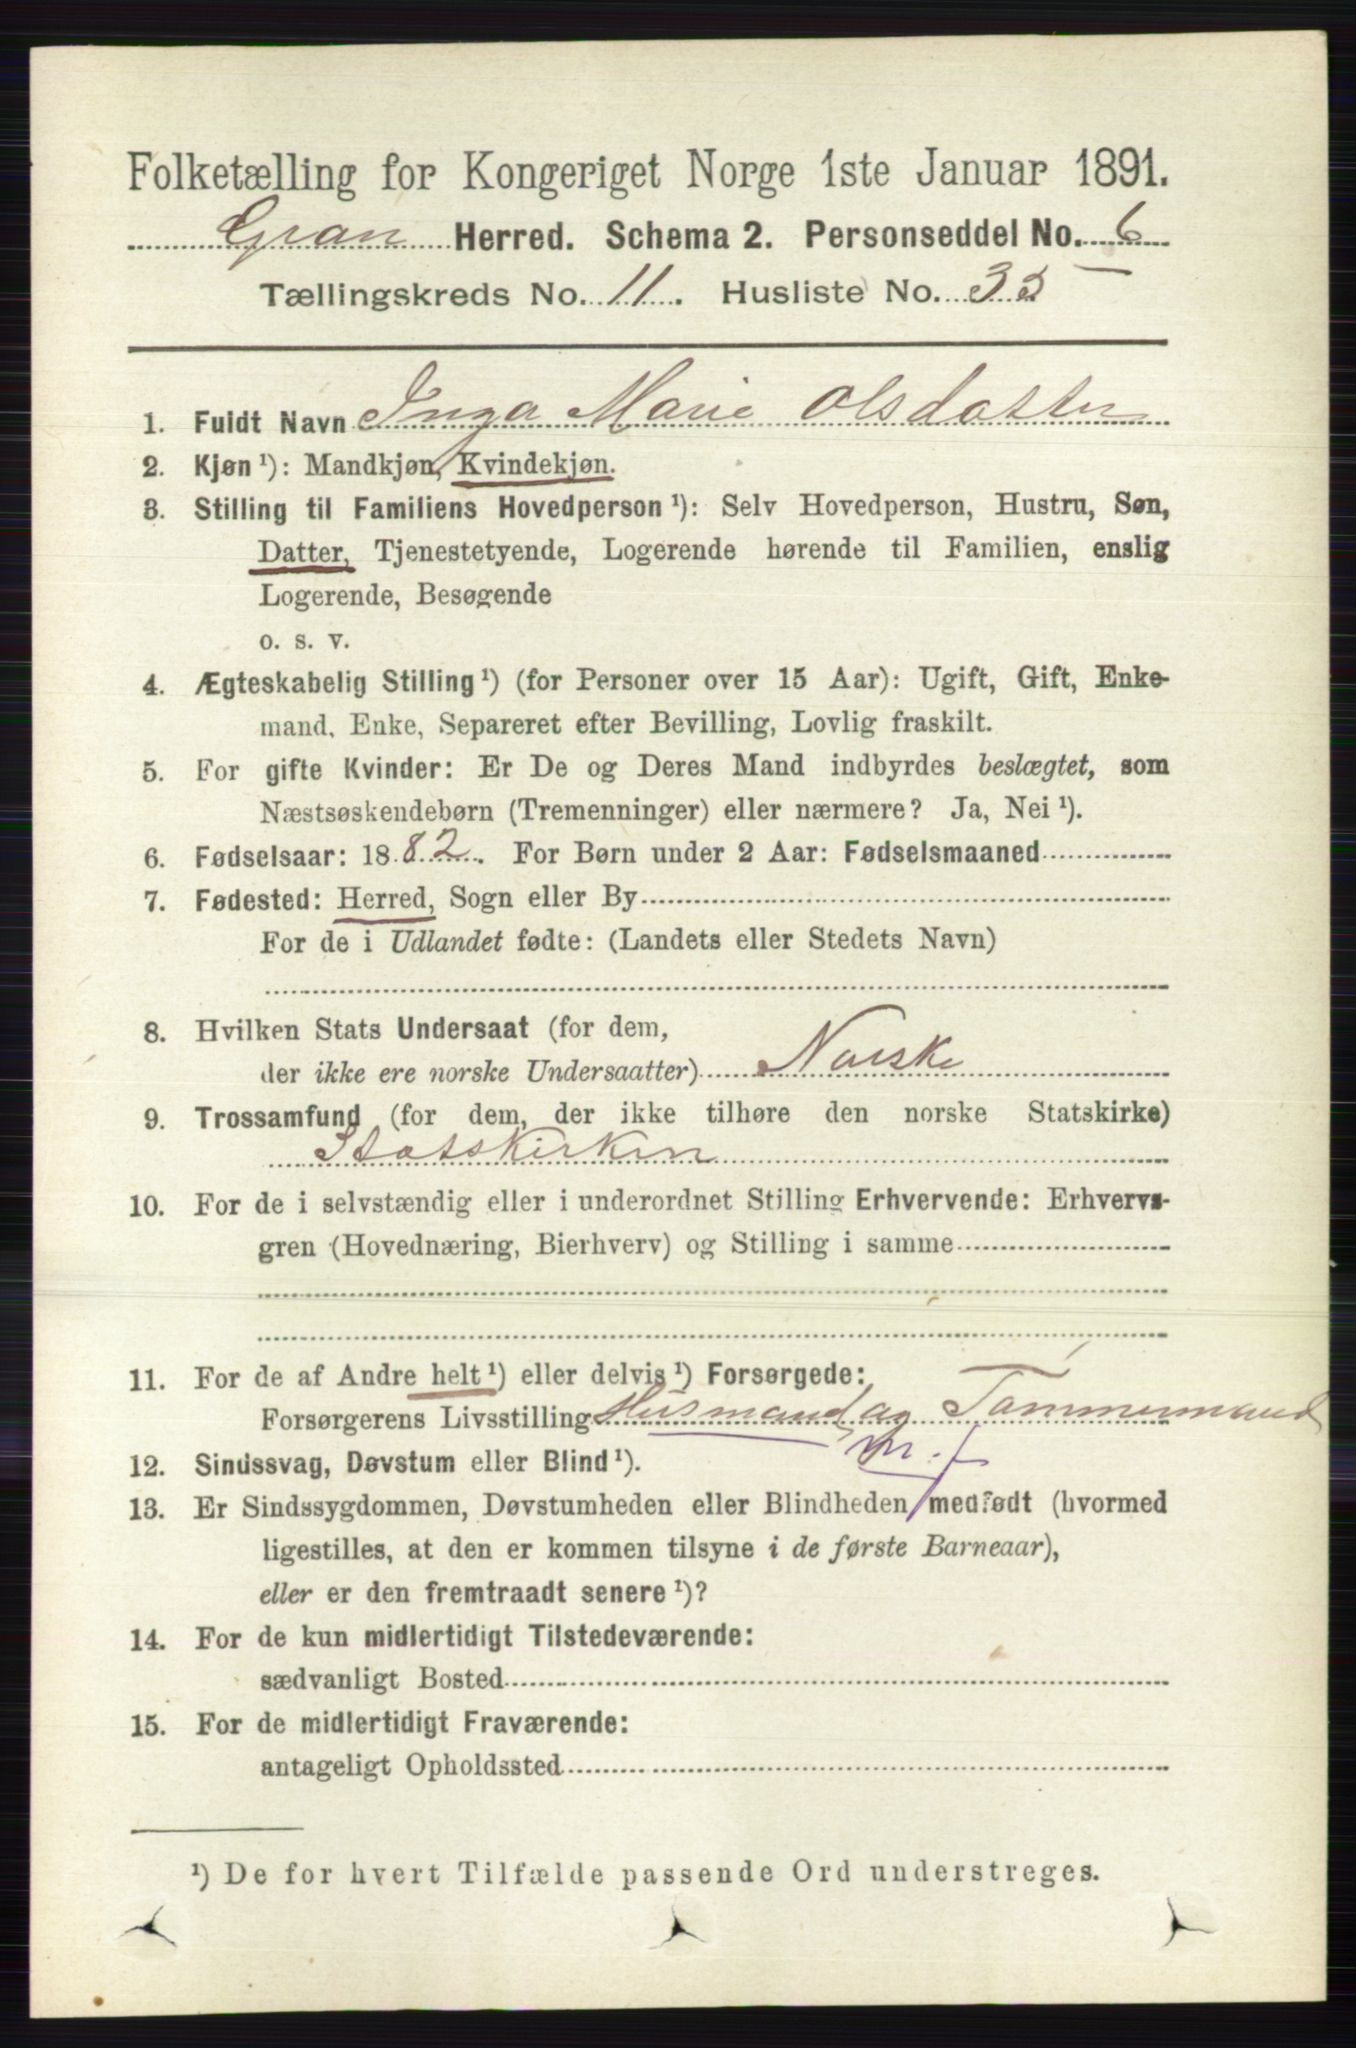 Folketælling for Kongeriget Norge 1ste Januar 1891.
Gran Herred. Schema 2. Personseddel No. 6
Tællingskreds No. 11. Husliste No. 35
1. Fuldt Navn Inga Marie Olsdatter
2. Kjøn ¹): Mandkjøn, Kvindekjøn.
3. Stilling til Familiens Hovedperson ¹): Selv Hovedperson, Hustru, Søn,
Datter, Tjenestetyende, Logerende hørende til Familien, enslig
Logerende, Besøgende
o. s. v.
4. Ægteskabelig Stilling ¹) (for Personer over 15 Aar): Ugift, Gift, Enke-
mand, Enke, Separeret efter Bevilling, Lovlig fraskilt.
5. For gifte Kvinder: Er De og Deres Mand indbyrdes beslægtet, som
Næstsøskendebørn (Tremenninger) eller nærmere? Ja, Nei ¹).
6. Fødselsaar: 1882. For Børn under 2 Aar: Fødselsmaaned
7. Fødested: Herred, Sogn eller By
For de i Udlandet fødte: (Landets eller Stedets Navn)
8. Hvilken Stats Undersaat (for dem,
der ikke ere norske Undersaatter) Norske
9. Trossamfund (for dem, der ikke tilhøre den norske Statskirke)
Statskirken
10. For de i selvstændig eller i underordnet Stilling Erhvervende: Erhvervs-
gren (Hovednæring, Bierhverv) og Stilling i samme
11. For de af Andre helt ¹) eller delvis ¹) Forsørgede:
Forsørgerens Livsstilling Husmand og Tømmermand
m. f
12. Sindssvag, Døvstum eller Blind ¹).
13. Er Sindssygdommen, Døvstumheden eller Blindheden medfødt (hvormed
ligestilles, at den er kommen tilsyne i de første Barneaar),
eller er den fremtraadt senere ¹)?
14. For de kun midlertidigt Tilstedeværende:
sædvanligt Bosted
15. For de midlertidigt Fraværende:
antageligt Opholdssted
¹) De for hvert Tilfælde passende Ord understreges.